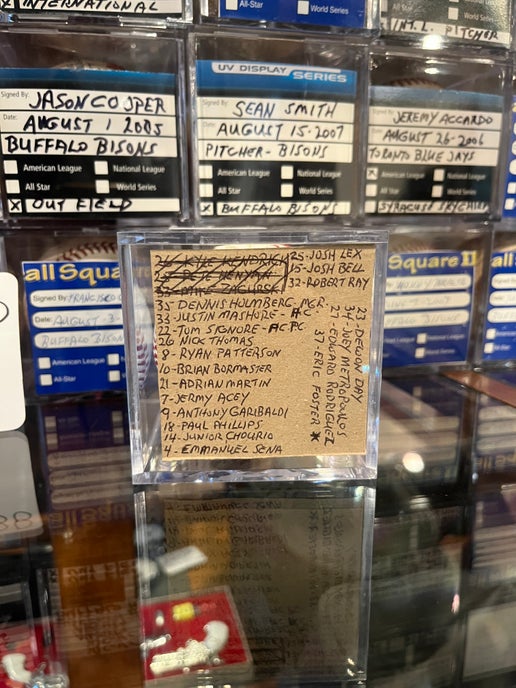 INTERNATIONAL
All-Star
World Series
INT. L. PITCHER
Signed By: JASON COOPER
Date: AUGUST 1 2005
BUFFALO BISONS
American League
National League
All Star
World Series
X OUT FIELD
UV DISPLAY SERIES
Signed By: SEAN SMITH
Date: AUGUST 15-2007
PITCHER- BISONS
American League
National League
All Star
World Series
X BUFFALO BISONS
Signed By: JEREMY ACCARDO
Date: AUGUST 26-2006
TORONTO BLUE JAYS
X American League
National League
All Star
World Series
X SYRACUSE
all Squa
Signed By: FRANCISCO
Date: AUGUST-3-
BUFFALO BISONS
American
All-Star
26 KYLE KENDRICK
PETE
MIKE ZAGURSKI
25-JOSH LEX
15-JOSH BELL
32-ROBERT RAY
35- DENNIS HOLMBERG. MGR.
33-JUSTIN MASHORE-AC
22-TOM SIGNORE-AC.PC.
26 NICK THOMAS
8-RYAN PATTERSON
10-BRIAN BORMASTER
21-ADRIAN MARTIN
7-JERMY ACEY
9-ANTHONY GARIBALDI
18-PAUL PHILLIPS
14-JUNIOR CHOURIO
4-EMMANUEL SENA
23-DEWON DAY
34-JOEY METROPOULOS
27-EDWARD RODRIGUEZ
37-ERIC FOSTER *
Square II
2007
BISONS
League
Series